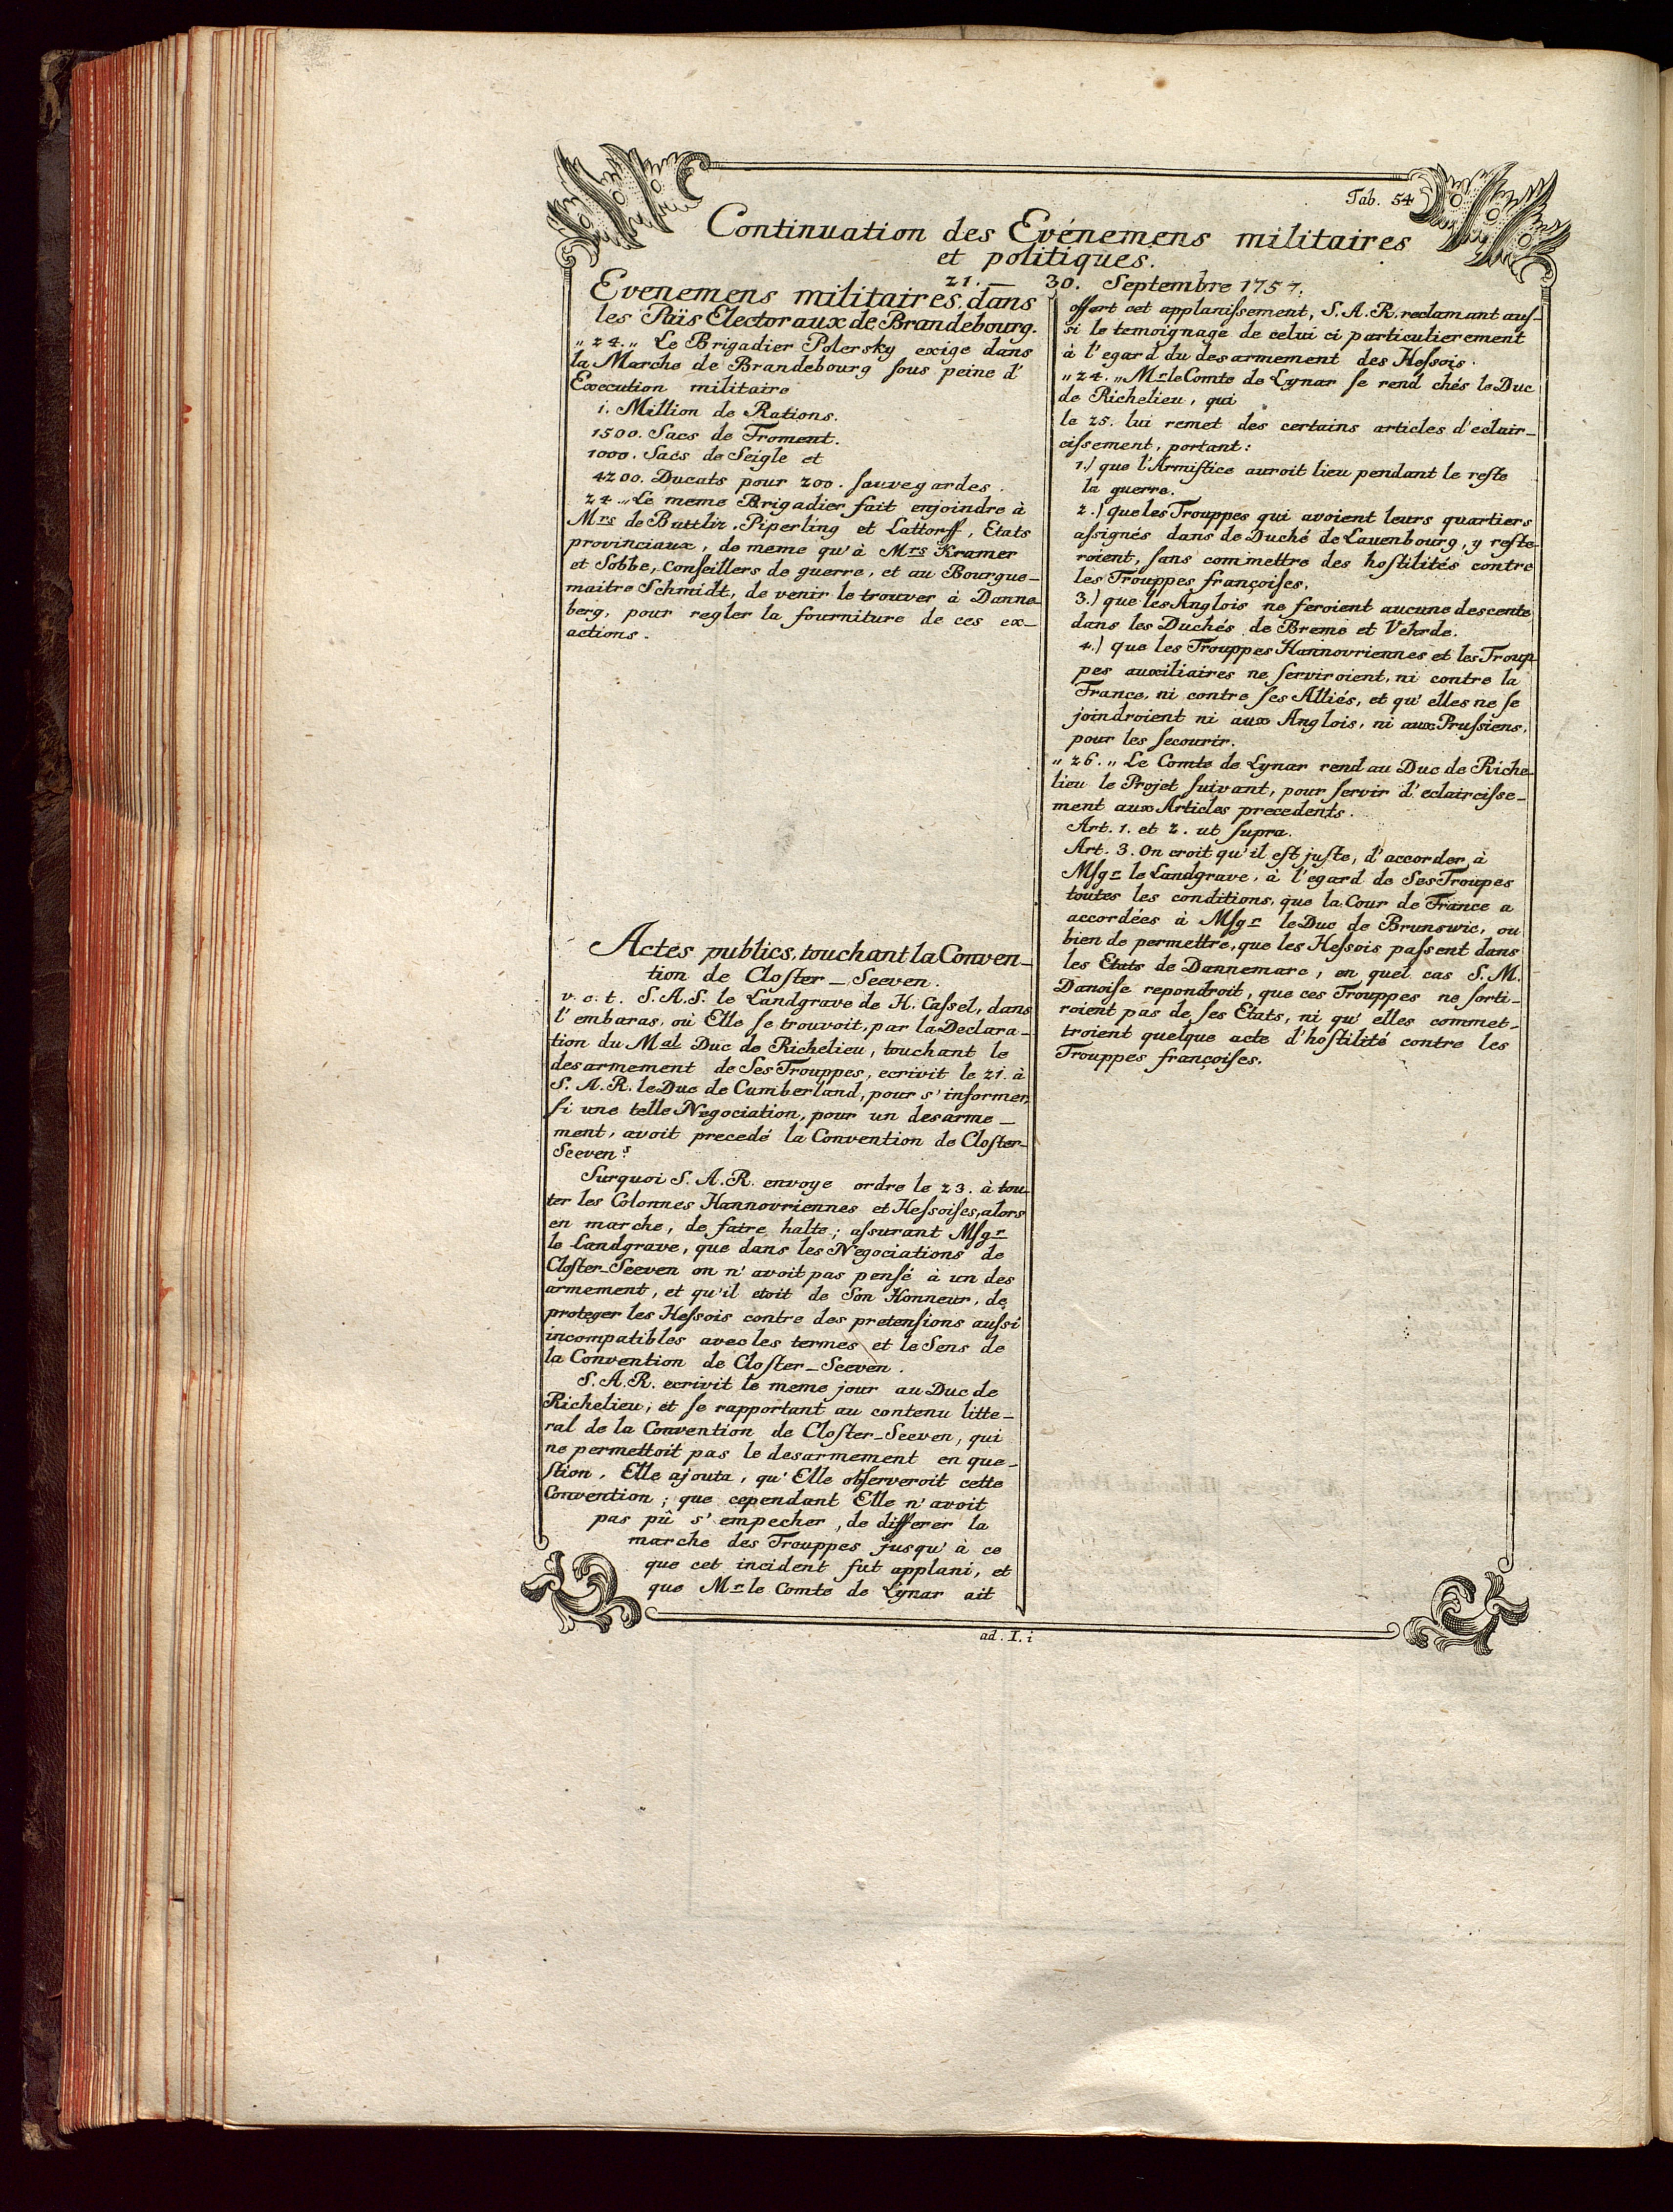 Tab. 54
Continuation des Evénemens militaires
et politiques.
21. — 30. Septembre 1757.
Evenemens militaires dans
les Païs Electoraux de Brandebourg.
„ 24. „ Le Brigadier Polersky exige dans
la Marche de Brandebourg ſous peine d'
Execution militaire
i. Million de Rations.
1500. Sacs de Froment.
1000. Sacs de Seigle et
4200. Ducats pour 200. ſauvegardes.
24. „ Le meme Brigadier fait enjoindre à
Mrs de Büttliz, Piperling et Lattorff, Etats
provinciaux, de meme qu'à Mrs Kramer
et Sobbe, Conſeillers de guerre, et au Bourgue-
maitre Schmidt, de venir le trouver à Danne-
berg, pour regler la fourniture de ces ex-
actions.
Actes publics, touchant la Conven-
tion de Cloſter-Seeven.
v. c. t. S. A. S. le Landgrave de H. Caſſel, dans
l'embaras, où Elle ſe trouvoit, par la Declara-
tion du Mal Duc de Richelieu, touchant le
desarmement de Ses Trouppes, ecrivit le 21. à
S. A. R. le Duc de Cumberland, pour s'informer,
ſi une telle Negociation, pour un desarme-
ment, avoit precedé la Convention de Cloſter-
Seeven?
Surquoi S. A. R. envoye ordre le 23. à tou-
ter les Colonnes Hannovriennes et Heſſoiſes, alors
en marche, de faire halte; aſſurant Mſgr
le Landgrave, que dans les Negociations de
Cloſter-Seeven on n'avoit pas penſé à un des
armement, et qu'il etoit de Son Honneur, de
proteger les Heſſois contre des pretenſions auſſi
incompatibles avec les termes et le Sens de
la Convention de Cloſter-Seeven.
S. A. R. ecrivit le meme jour au Duc de
Richelieu; et ſe rapportant au contenu litte-
ral de la Convention de Cloſter-Seeven, qui
ne permettoit pas le desarmement en que-
ſtion, Elle ajouta, qu'Elle obſerveroit cette
Convention; que cependant Elle n'avoit
pas pû s'empecher, de differer la
marche des Trouppes jusqu'à ce
que cet incident fut applani, et
que Mr le Comte de Lynar ait
offert cet applaniſſement, S. A. R. reclamant auſ-
ſi le temoignage de celui ci particulierement
à l'egard du desarmement des Heſſois.
„ 24. „ Mr le Comte de Lynar ſe rend chés le Duc
de Richelieu, qui
le 25. lui remet des certains articles d'eclair-
ciſſement, portant:
1.) que l'Armiſtice auroit lieu pendant le reſte
la guerre.
2.) que les Trouppes qui avoient leurs quartiers
aſſignés dans de Duché de Lauenbourg, y reſte-
roient, ſans commettre des hoſtilités contre
les Trouppes françoiſes.
3.) que les Anglois ne feroient aucune descente
dans les Duchés de Breme et Vehrde.
4.) que les Trouppes Hannovriennes et les Troup-
pes auxiliaires ne ſerviroient, ni contre la
France, ni contre ſes Alliés, et qu'elles ne ſe
joindroient ni aux Anglois, ni aux Pruſſiens,
pour les ſecourir.
„ 26. „ Le Comte de Lynar rend au Duc de Riche-
lieu le Projet ſuivant, pour ſervir d'eclairciſſe-
ment aux Articles precedents.
Art. 1. et 2. ut ſupra.
Art. 3. On croit qu'il eſt juſte, d'accorder à
Mſgr le Landgrave, à l'egard de Ses Troupes
toutes les conditions, que la Cour de France a
accordées à Mſgr le Duc de Brunswic, ou
bien de permettre, que les Heſſois paſſent dans
les Etats de Dannemarc, en quel cas S. M.
Danoiſe repondroit, que ces Trouppes ne ſorti-
roient pas de ſes Etats, ni qu'elles commet-
troient quelque acte d'hoſtilité contre les
Trouppes françoiſes.
ad. I. i